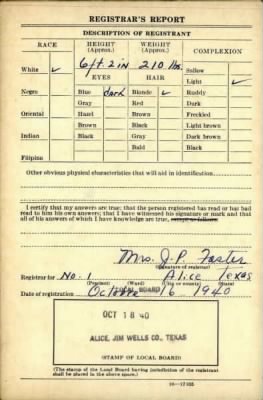 REGISTRAR'S REPORT
DESCRIPTION OF REGISTRANT
RACE HEIGHT (Approx.) WEIGHT (Approx.) COMPLEXION
White ✓ 6 ft. 2 in 210 lbs. Sallow
EYES HAIR Light ✓
Negro Blue dark Blonde ✓ Ruddy
Gray Red Dark
Oriental Hazel Brown Freckled
Brown Black Light brown
Indian Black Gray Dark brown
Bald Black
Filipino
Other obvious physical characteristics that will aid in identification
I certify that my answers are true; that the person registered has read or has had
read to him his own answers; that I have witnessed his signature or mark and that
all of his answers of which I have knowledge are true, except as follows:
Mrs. J. P. Foster
(Signature of registrar)
Registrar for No. 1 Alice Texas
(Precinct) (Ward) (City or county) (State)
Date of registration October 16 1940
LOCAL BOARD
OCT 18 40
ALICE, JIM WELLS CO., TEXAS
(STAMP OF LOCAL BOARD)
(The stamp of the Local Board having jurisdiction of the registrant
shall be placed in the above space.)